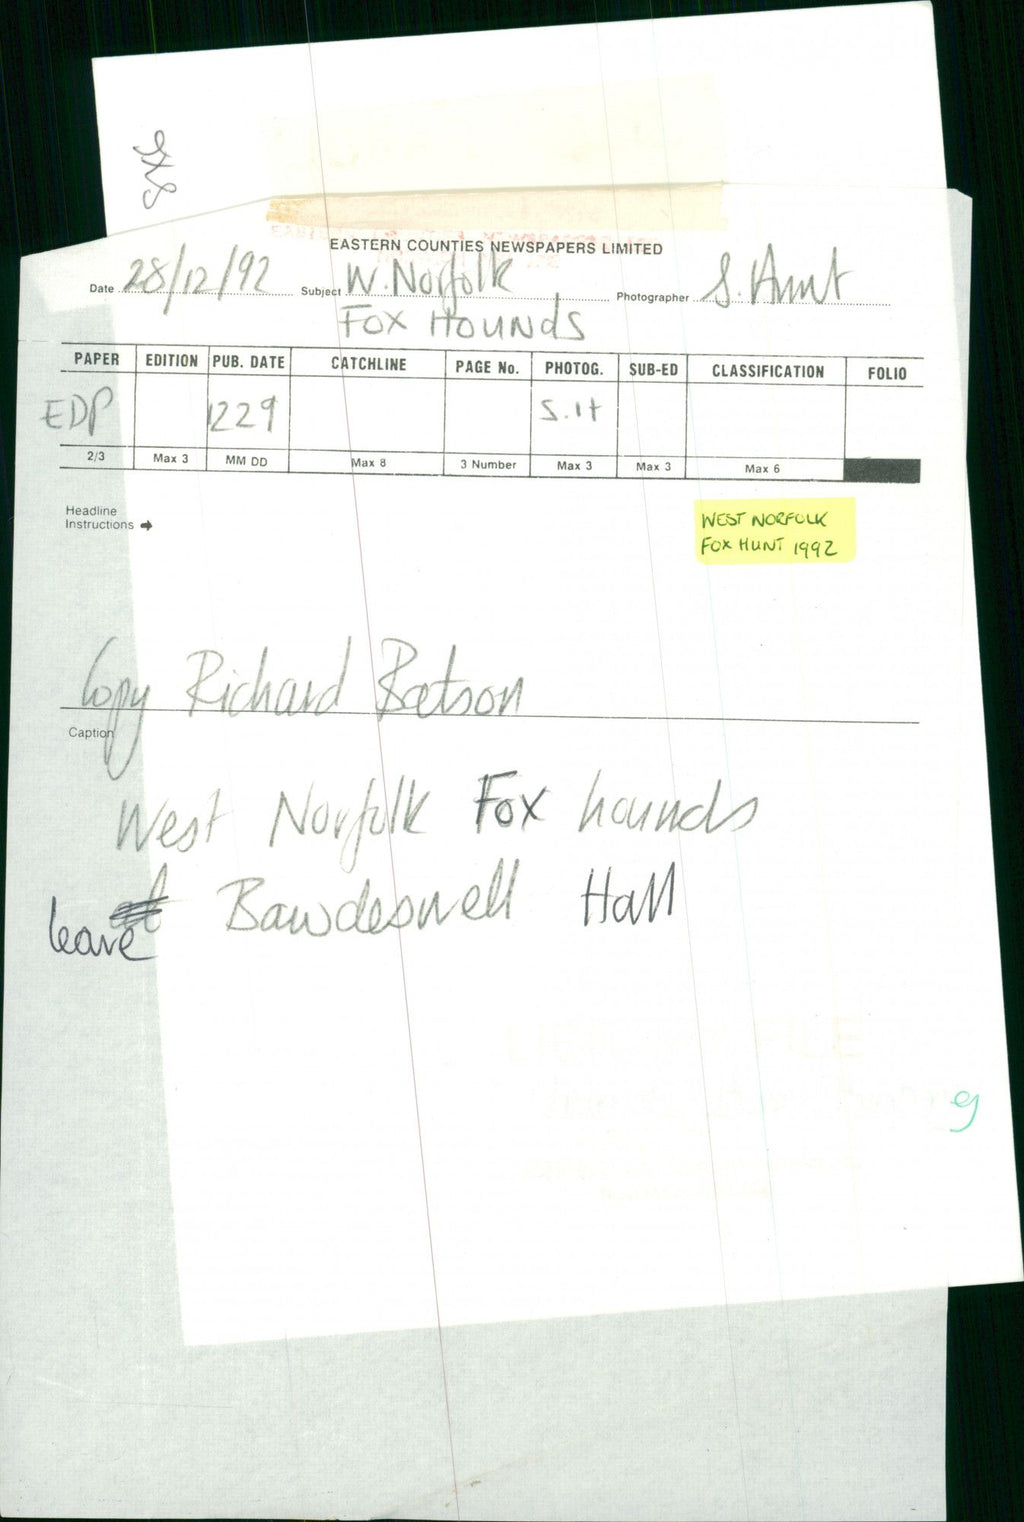 EASTERN COUNTIES NEWSPAPERS LIMITED
Date 28/12/92 Subject W. Norfolk Photographer S. Hunt
FOX HOUNDS
PAPER EDITION PUB. DATE CATCHLINE PAGE No. PHOTOG. SUB-ED CLASSIFICATION FOLIO
EDP 1229 S. H
2/3 Max 3 MM DD Max 8 3 Number Max 3 Max 3 Max 6
Headline
Instructions →
WEST NORFOLK
FOX HUNT 1992
Copy Richard Batson
Caption
West Norfolk Fox hounds
leave Bawdeswell Hall